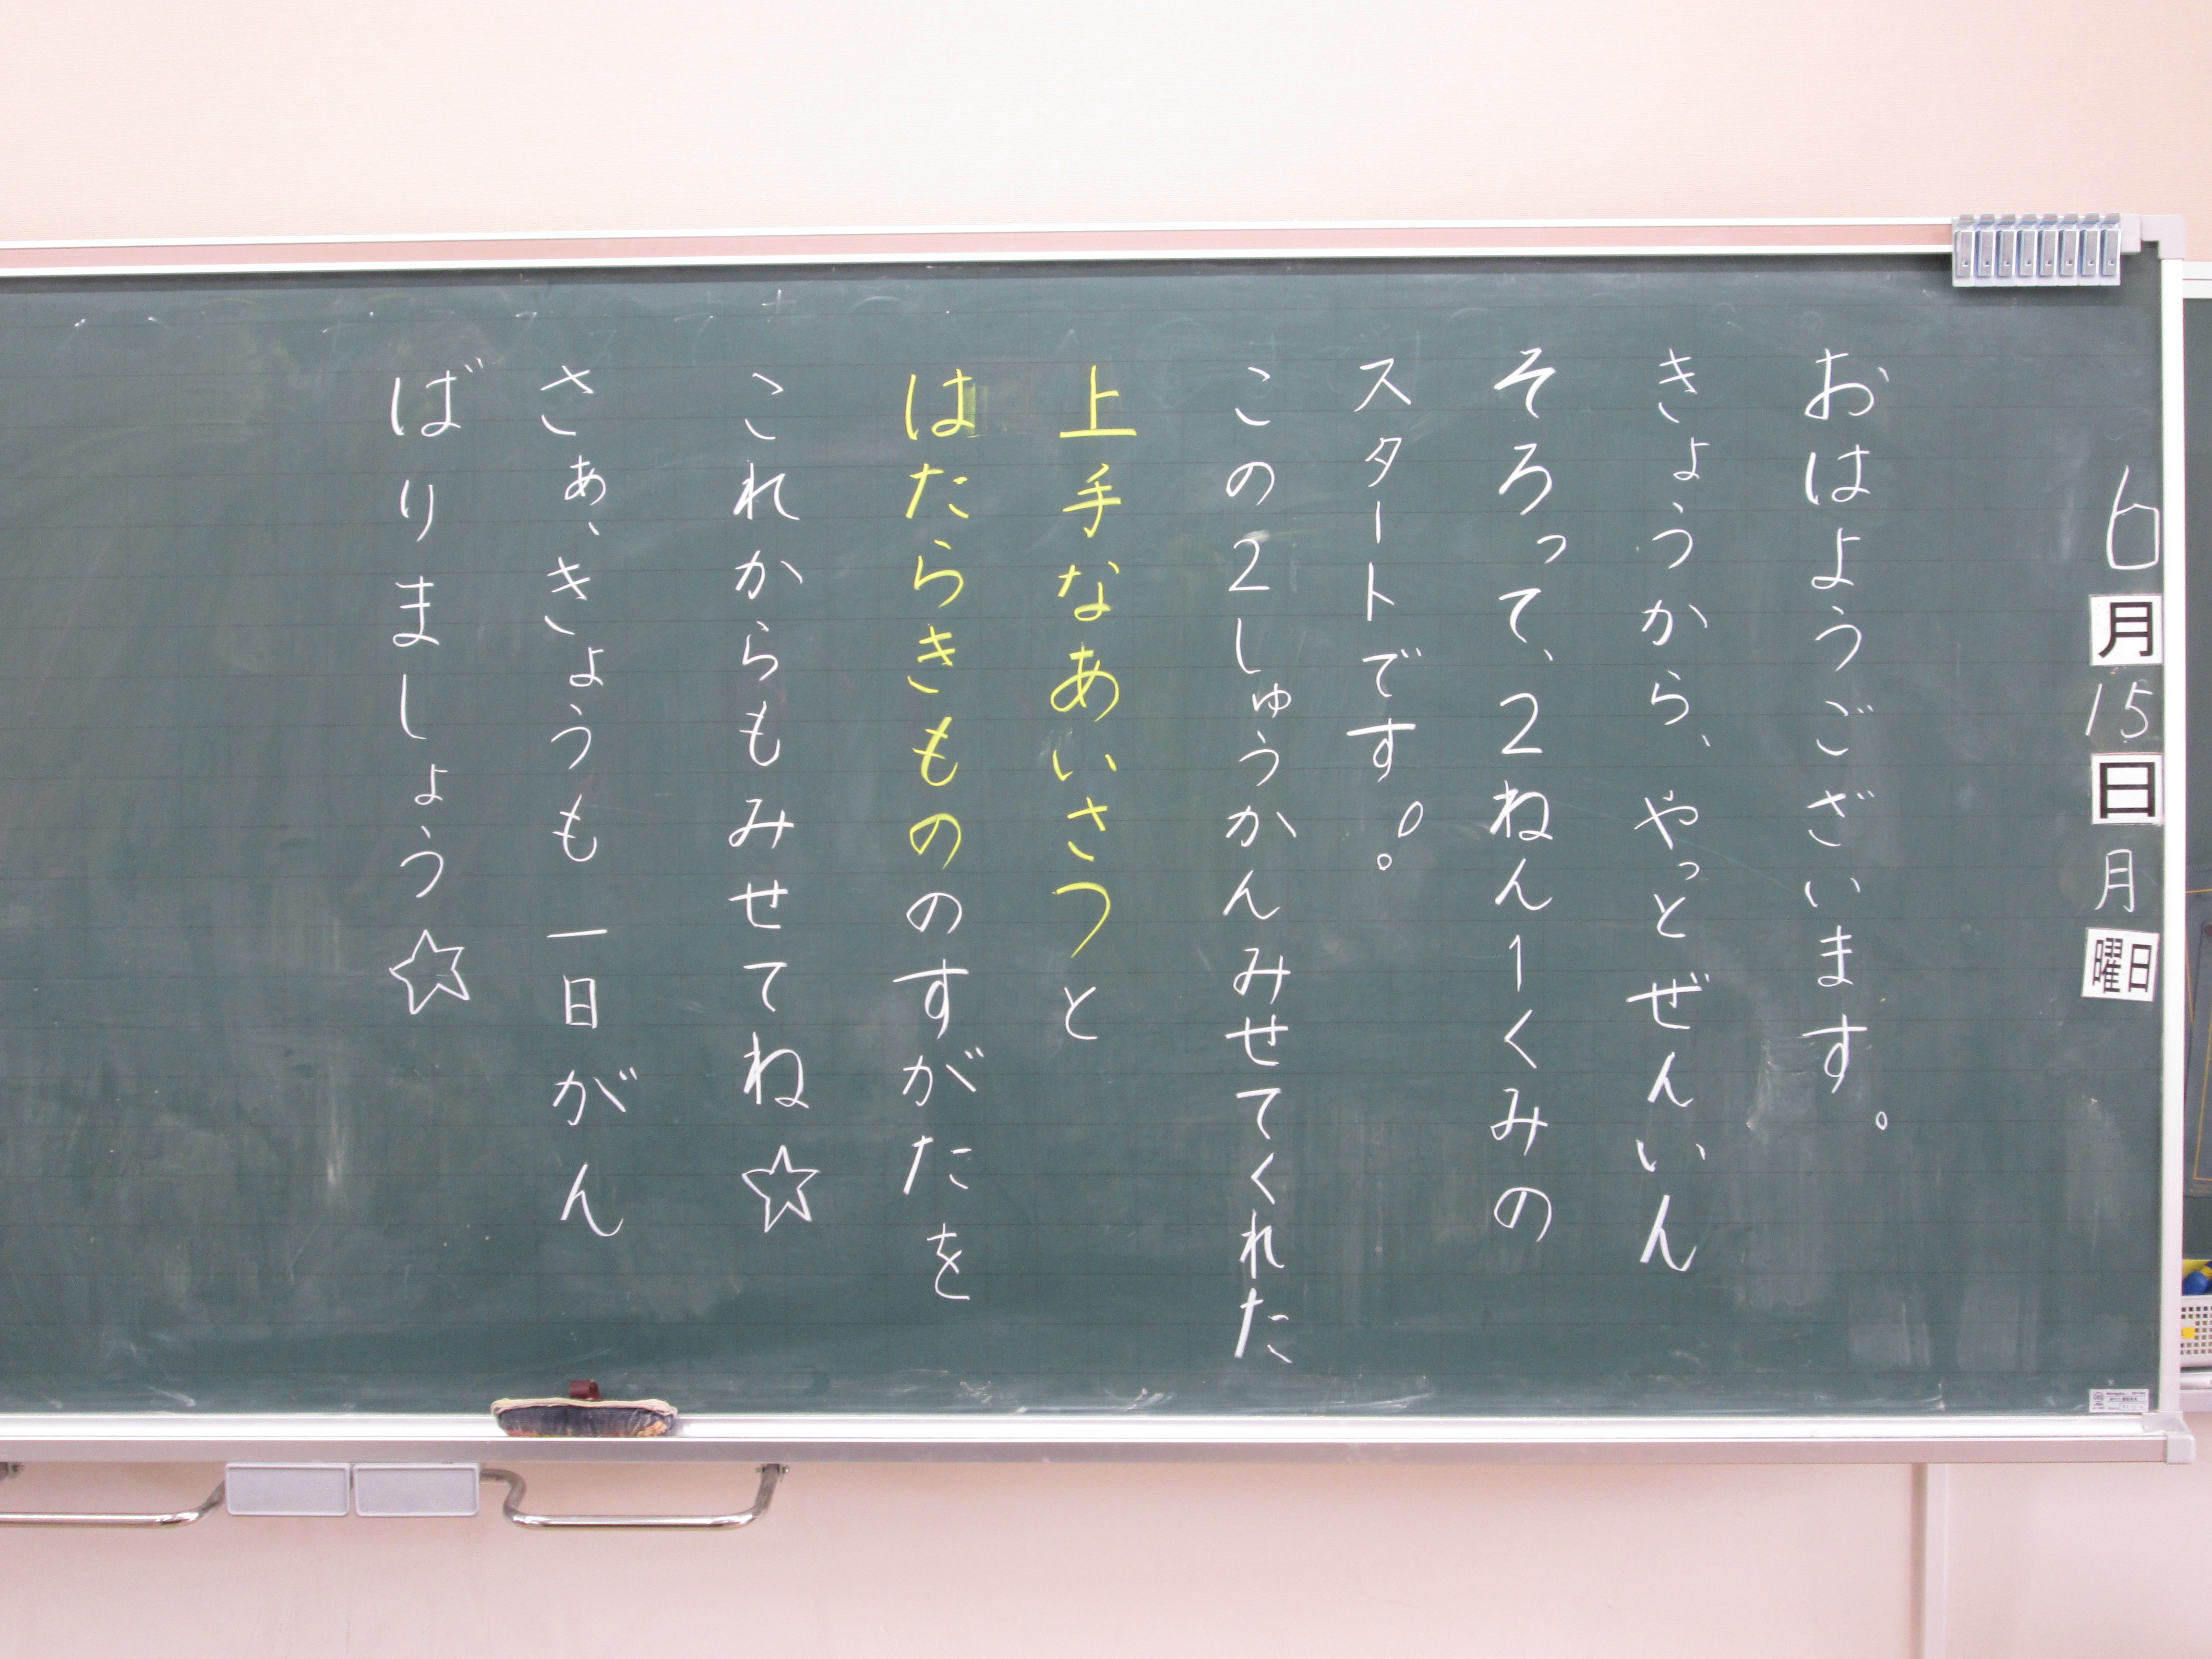 6月15日月曜日
おはようございます。
きょうから、やっとぜんいん
そろって、2ねん1くみの
スタートです!。
この2しゅうかんみせてくれた
上手なあいさつと
はたらきもののすがたを
これからもみせてね☆
さぁ、きょうも一日がん
ばりましょう☆